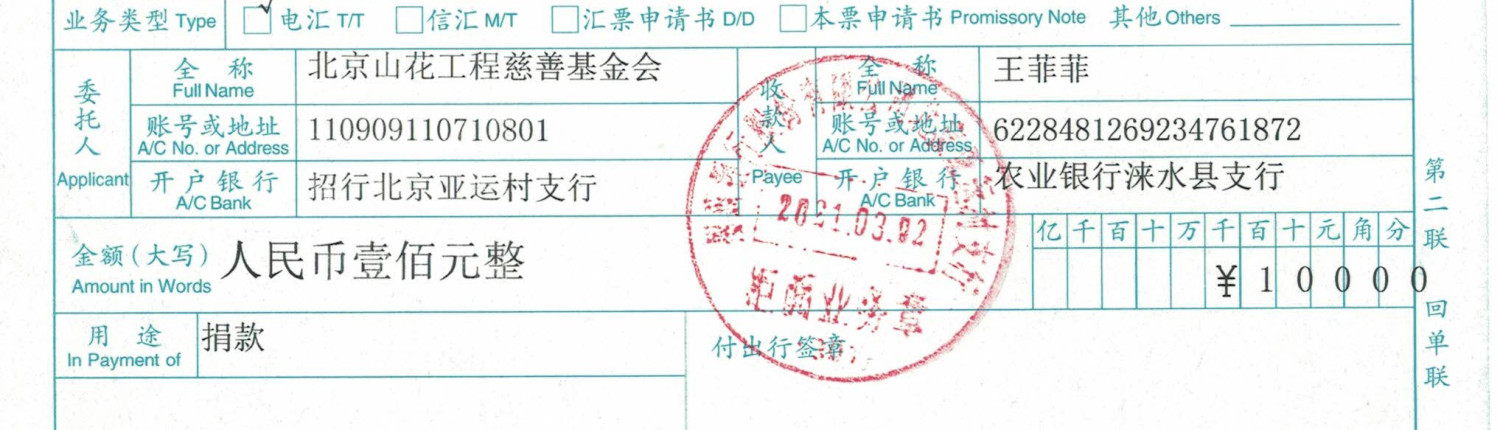 业务类型 Type 电汇 T/T 信汇 M/T 汇票申请书 D/D 本票申请书 Promissory Note 其他 Others
委托人 Applicant
全称 Full Name 北京山花工程慈善基金会
账号或地址 A/C No. or Address 110909110710801
开户银行 A/C Bank 招行北京亚运村支行
收款人 Payee
全称 Full Name 王菲菲
账号或地址 A/C No. or Address 6228481269234761872
开户银行 A/C Bank 农业银行涞水县支行
金额(大写) Amount in Words 人民币壹佰元整
亿千百十万千百十元角分
¥10000
用途 In Payment of 捐款
付出行签章
2021.03.02
柜面业务章
第二联 回单联